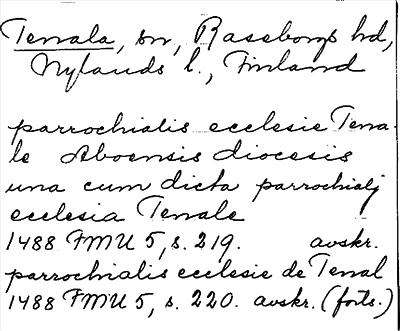 Tenala, sn, Raseborgs hd,
Nylands l., Finland
parrochialis ecclesie Tena-
le Aboensis diocesis
una cum dicta parrochialj
ecclesia Tenale
1488 FMU 5, s. 219. avskr.
parrochialis ecclesie de Tenal
1488 FMU 5, s. 220. avskr. (forts.)